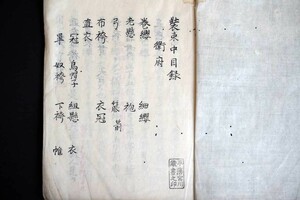 装束中目録
衛府
巻纓 細纓
老懸 袍
弓箭
布袴 衣冠
直衣
冠 烏帽子 組懸 衣
単 奴袴 下袴 帷